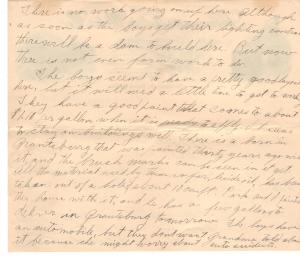 There is no work going on up here. Although
as soon as the boys get their lighting contract
there will be a dam to build here. But now
there is not even farm work to do.
The boys seem to have a pretty good layout
here, but it will need a little time to get to work.
They have a good paint that comes to about
per gallon when it is ready to
to stay on buildings well. There is a barn in
Grantsburg that was painted thirty years ago with
it and the brush marks can be seen in it yet
all the material needed, has been
taken out of a hole about 10 sq ft. Park and I painted
the house with it, and he has a few gallons to
deliver in Grantsburg tomorrow. The boys have
an automobile, but they dont want grandma told about
it because she might worry about auto accidents.